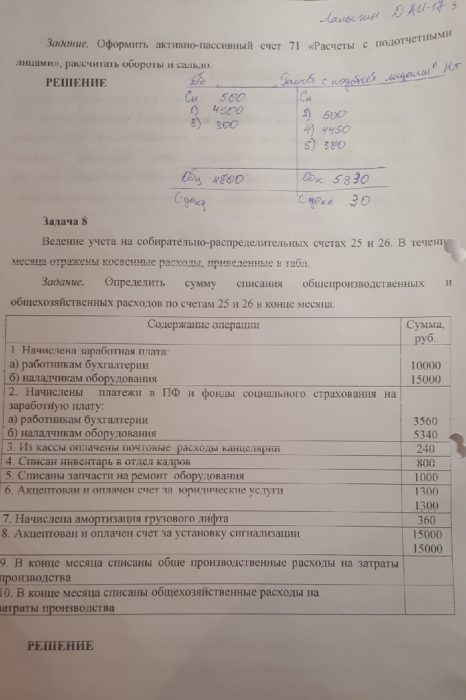 Лапыгин ДАИ-17 з
Задание. Оформить активно-пассивный счет 71 «Расчеты с подотчетными
лицами», рассчитать обороты и сальдо.
РЕШЕНИЕ
Дб с подотчет лицами" Кт
Сн 500 Сн
1) 4500 2) 600
3) 300 4) 4450
5) 380
Обд 4800 Обк 5370
Скк 30
Задача 8
Ведение учета на собирательно-распределительных счетах 25 и 26. В течение
месяца отражены косвенные расходы, приведенные в табл.
Задание. Определить сумму списания общепроизводственных и
общехозяйственных расходов по счетам 25 и 26 в конце месяца.
Содержание операции Сумма,
руб.
1. Начислена заработная плата:
а) работникам бухгалтерии 10000
б) наладчикам оборудования 15000
2. Начислены платежи в ПФ и фонды социального страхования на
заработную плату:
а) работникам бухгалтерии 3560
б) наладчикам оборудования 5340
3. Из кассы оплачены почтовые расходы канцелярии 240
4. Списан инвентарь в отдел кадров 800
5. Списаны запчасти на ремонт оборудования 1000
6. Акцептован и оплачен счет за юридические услуги 1300
1300
7. Начислена амортизация грузового лифта 360
8. Акцептован и оплачен счет за установку сигнализации 15000
15000
9. В конце месяца списаны обще производственные расходы на затраты
производства
10. В конце месяца списаны общехозяйственные расходы на
затраты производства
РЕШЕНИЕ